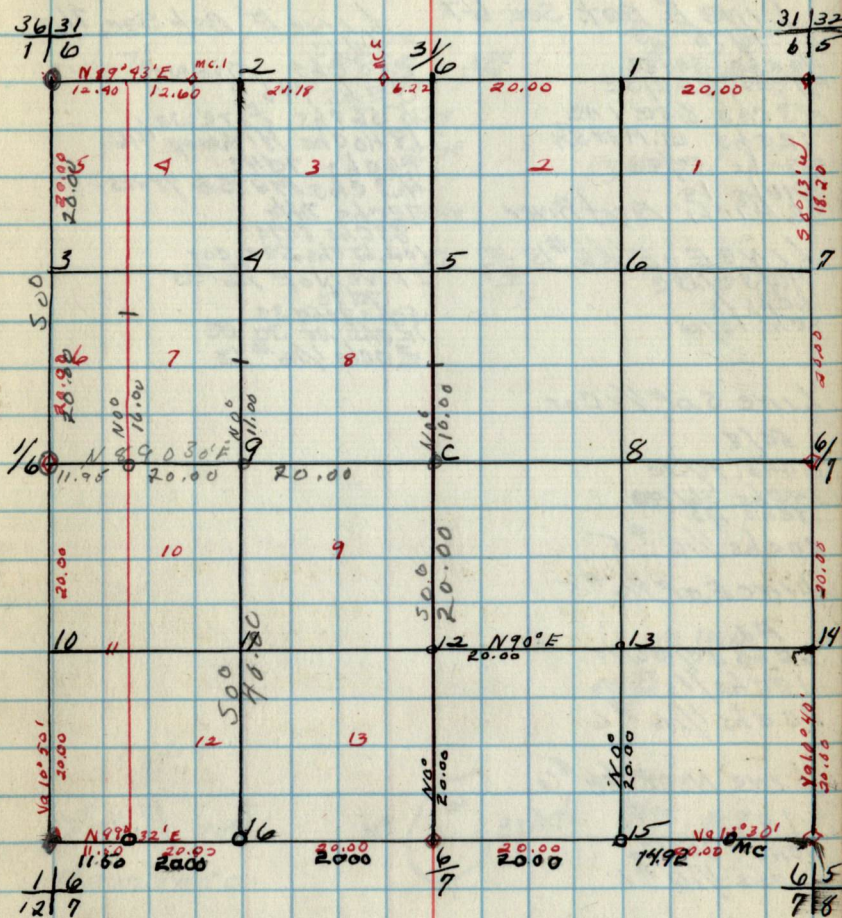 36 31 31 31 32
1 6 2 6 1 6 5
N 89° 43' E MC.1 MCS
12.40 12.60 21.18 6.22 20.00 20.00
5 4 3 2 1
20.00 20.00 S 0° 13' W 18.20
3 4 5 6 7
S 0°
6 7 8
20.00 20.80 N 0° 16.00 N 0° 11.00 N 0° 10.00 20.00
1/6 N 89° 30' E 9 C 8 6/7
11.95 20.00 20.00
10 9
20.00 S 0.0 20.00 20.00
10 11 11 12 N 90° E 13 14
20.00
S 0° 40.80
12 13
Va 10° 50' 20.00 N 0° 20.00 N 0° 20.00 Va 10° 40' 20.00
N 99° 32' E 16 15 Va 10° 30'
11.50 20.00 20.00 20.00
11.60 20.00 2000 6 2000 14.92 MC
7
1 6 6 5
12 7 7 8